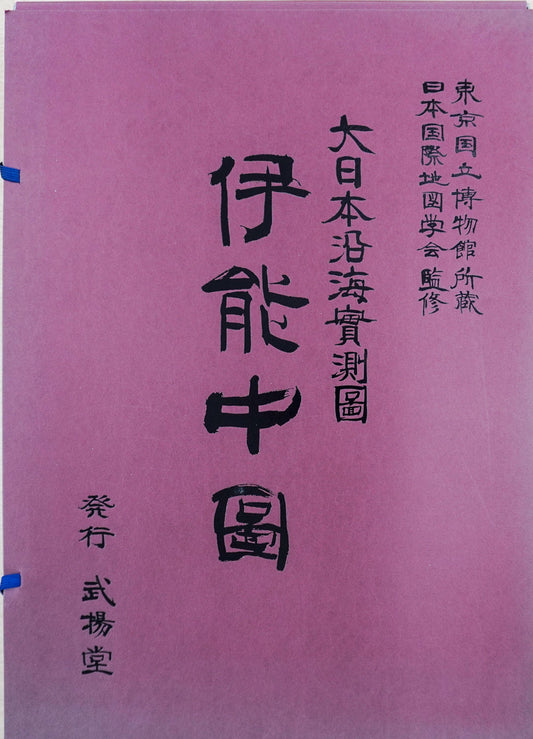 東京国立博物館所蔵
日本国際地図学会監修
大日本沿海實測圖
伊能中圖
発行 武揚堂